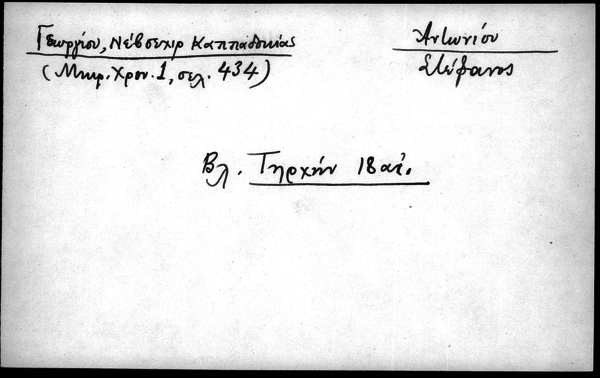 Γεωργίου, Νέβσεχιρ Καππαδοκίας
(Μικρ. Χρον. 1, σελ. 434)
Αντωνίου
Στέφανος
Βλ. Τηρχήν 18 αἰ.